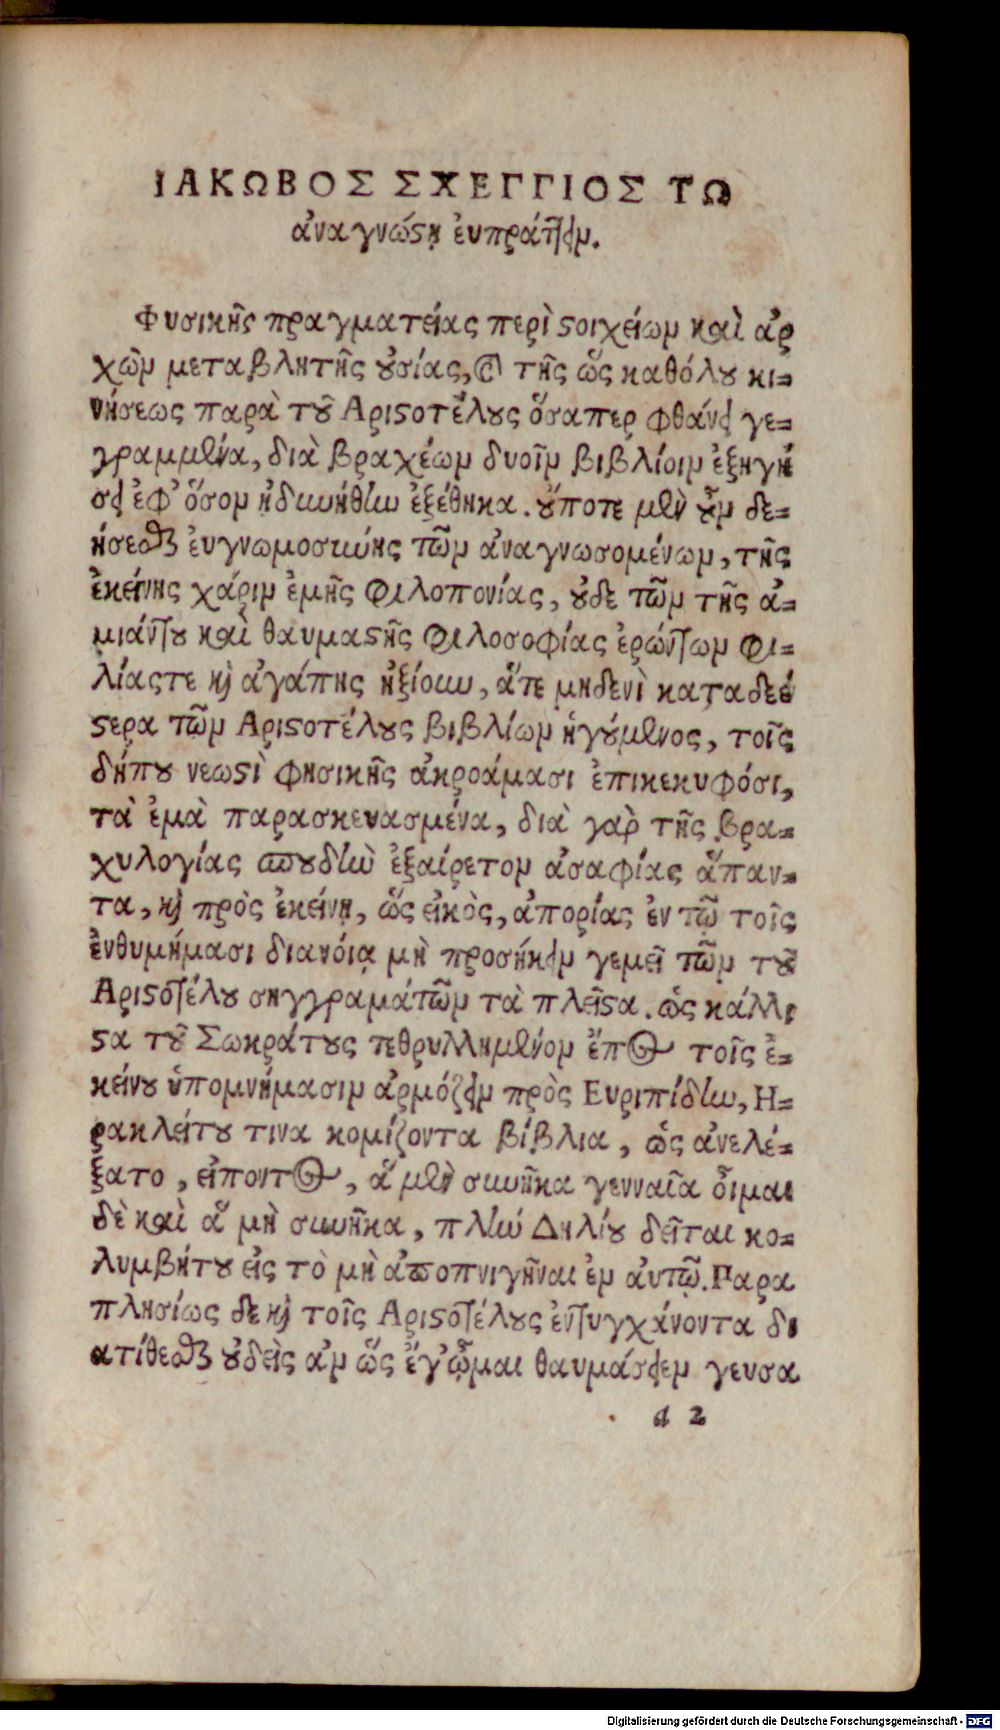 ΙΑΚΩΒΟΣ ΣΧΕΓΓΙΟΣ ΤΩ
ἀναγνώστῃ ἐυπράττειν.
Φυσικῆς πραγματείας περὶ στοιχείων καὶ ἀρ
χῶν μεταβλητῆς οὐσίας, καὶ τῆς ὥς καθόλου κι=
νήσεως παρὰ τοῦ Αριστοτέλους ὅσαπερ φθάνει γε=
γραμμένα, διὰ βραχέων δυοῖν βιβλίοιν ἐξηγή
σει ἐφ' ὅσον ἠδυνήθην ἐξέθηκα. οὔποτε μὲν οὖν δε=
ήσεσθαι ἐυγνωμοσύνης τῶν ἀναγνωσομένων, τῆς
ἐκείνης χάριν ἐμῆς φιλοπονίας, οὐδε τῶν τῆς ἀ=
μιάντου καὶ θαυμαστῆς φιλοσοφίας ἐρώντων φι=
λίαςτε καὶ ἀγάπης ἠξίουν, ἅτε μηδενὶ καταδεέ
στερα τῶν Αριστοτέλους βιβλίων ἡγούμενος, τοῖς
δήπου νεωστὶ φησικῆς ἀκροάμασι ἐπικεκυφόσι,
τὰ ἐμὰ παρασκευασμένα, διὰ γὰρ τῆς βρα=
χυλογίας σπουδὴν ἐξαίρετον ἀσαφίας ἅπαν=
τα, καὶ πρὸς ἐκείνῃ, ὥς εἰκὸς, ἀπορίας ἐν τῷ τοῖς
ἐνθυμήμασι διανόιᾳ μὴ προσήκειν γεμεῖ τῶν τοῦ
Αριστοτέλου σηγγραμάτων τὰ πλεῖστα. ὡς κάλλι
στα τοῦ Σωκράτους τεθρυλλημένον ἔπος τοῖς ἐ=
κείνου ὑπομνήμασιν ἁρμόζειν πρὸς Ευριπίδην, Η=
ρακλείτου τινα κομίζοντα βίβλια, ὡς ἀνελέ=
ξατο, εἰποντος, ἃ μὲν συνῆκα γενναῖα οἶμαι
δὲ καὶ ἃ μὴ συνῆκα, πλὴν Δηλίου δεῖται κο=
λυμβήτου εἰς τὸ μὴ ἀποπνιγῆναι ἐν ἀυτῷ. Παρα
πλησίως δε καὶ τοῖς Αριστοτέλους ἐντυγχάνοντα δι
ατίθεσθαι οὐδεὶς ἀν ὥς ἔγ' ᾦμαι θαυμάσειεν γευσα
a 2
Digitalisierung gefördert durch die Deutsche Forschungsgemeinschaft - DFG